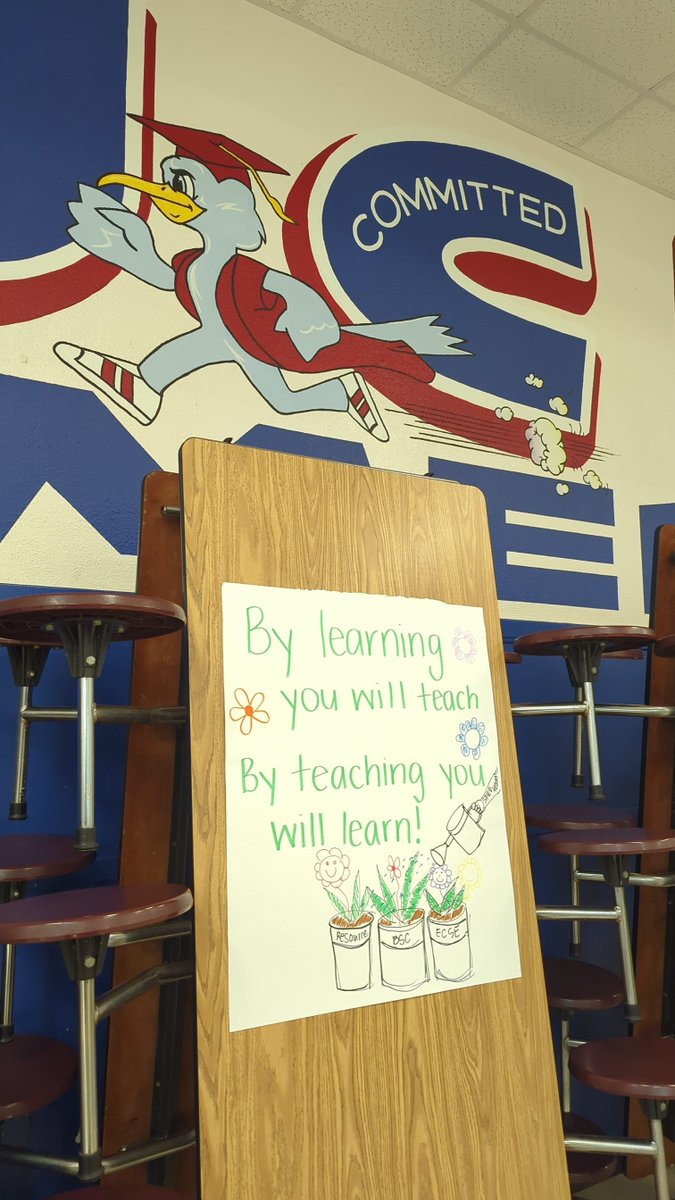 COMMITTED
By learning
you will teach
By teaching you
will learn!
Resource
BSC
ECSE